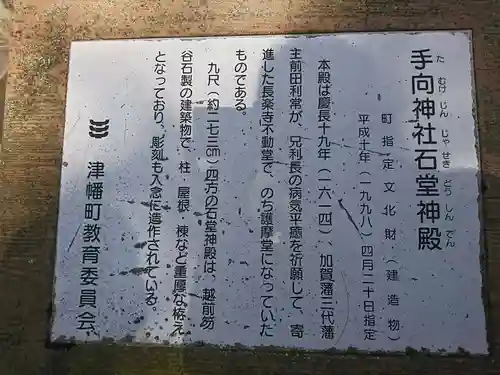 手向神社石堂神殿
たむけじんじゃせきどうしんでん
町指定文化財（建造物）
平成十年（一九九八）四月二十日指定
本殿は慶長十九年（一六一四）、加賀藩三代藩
主前田利常が、兄利長の病気平癒を祈願して、寄
進した長楽寺不動堂で、のち護摩堂になっていた
ものである。
九尺（約二七三㎝）四方の石堂神殿は、越前笏
谷石製の建築物で、柱・屋根・棟など重厚な構え
となっており、彫刻も入念に造作されている。
津幡町教育委員会